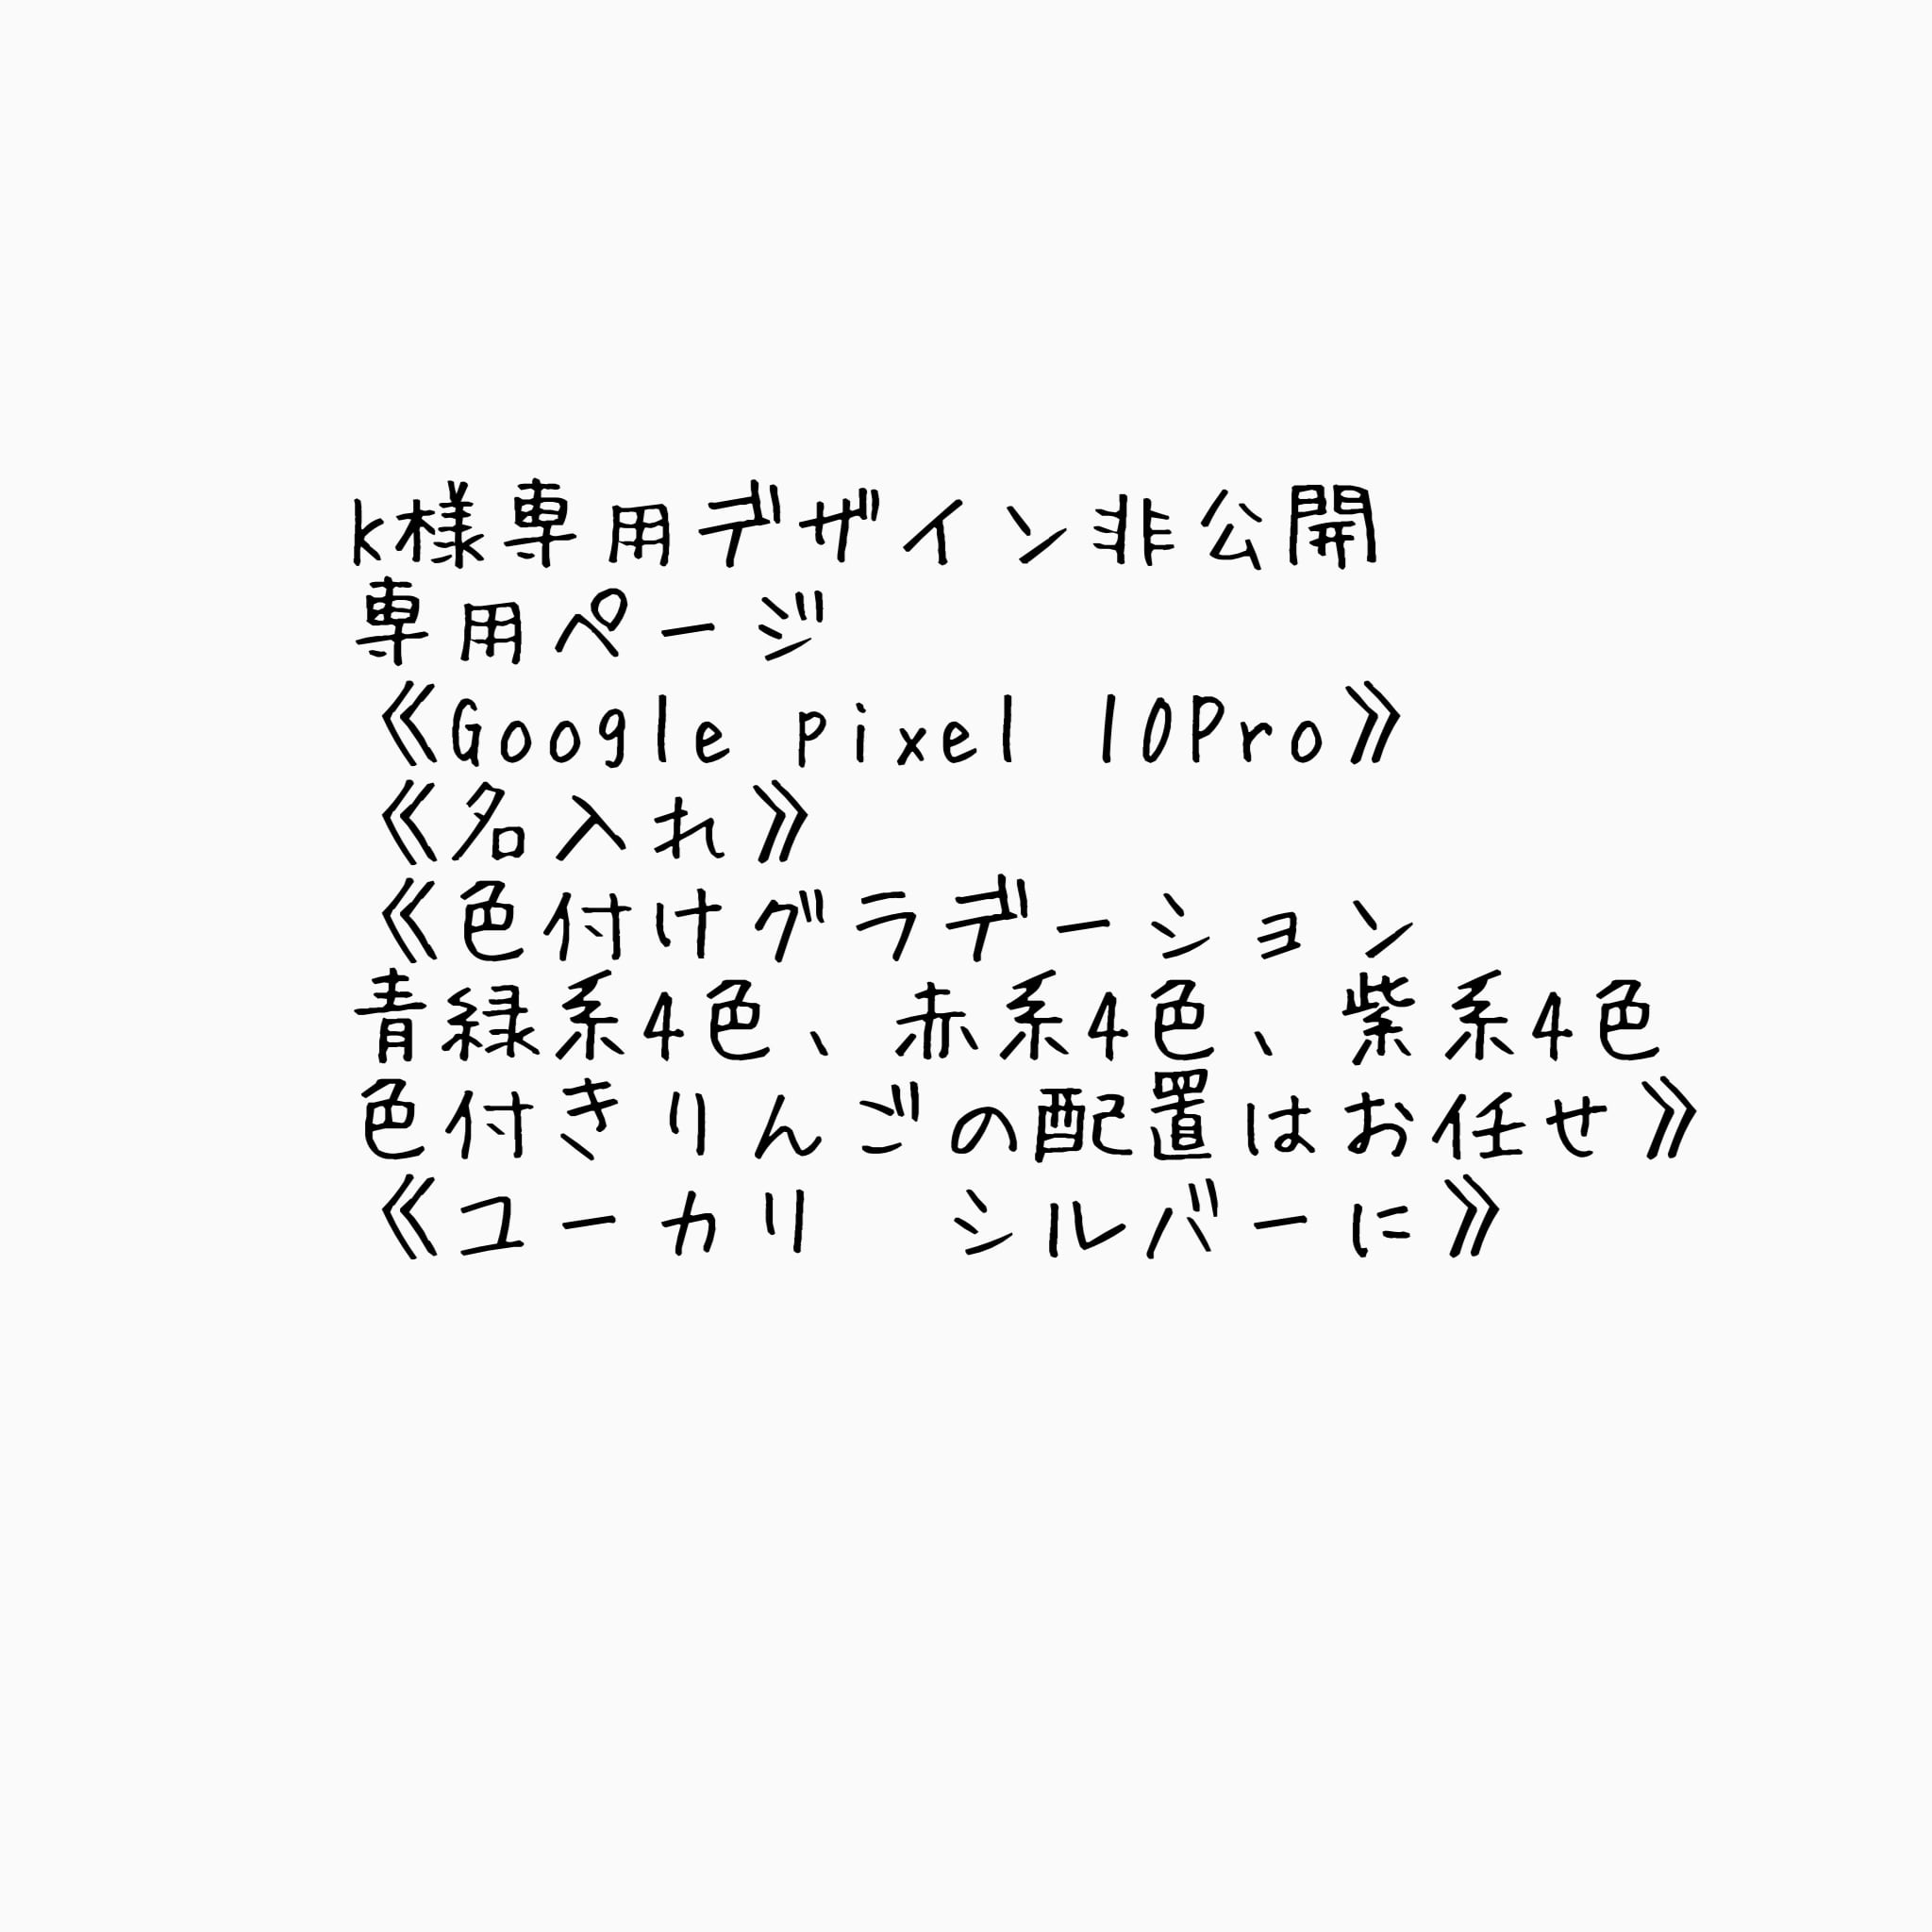 k様専用デザイン非公開
専用ページ
《Google pixel 10Pro》
《名入れ》
《色付けグラデーション
青緑系4色、赤系4色、紫系4色
色付きりんごの配置はお任せ》
《ユーカリ　シルバーに》